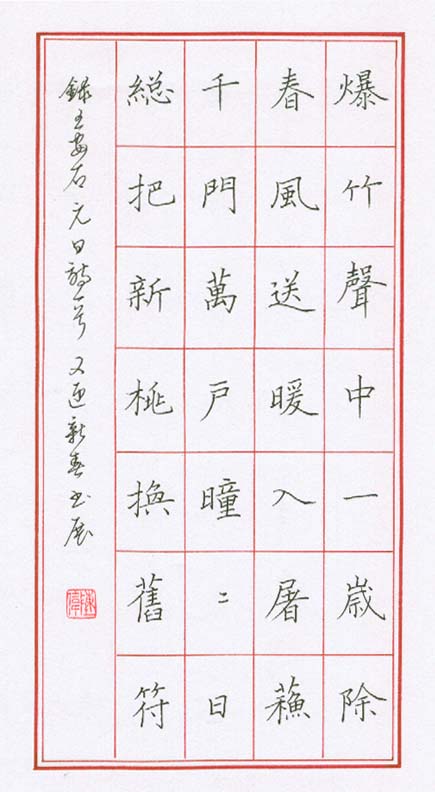 爆竹聲中一歲除
春風送暖入屠蘓
千門萬戶瞳〻日
総把新桃換舊符
録王安石元日詩一首 又迎新春